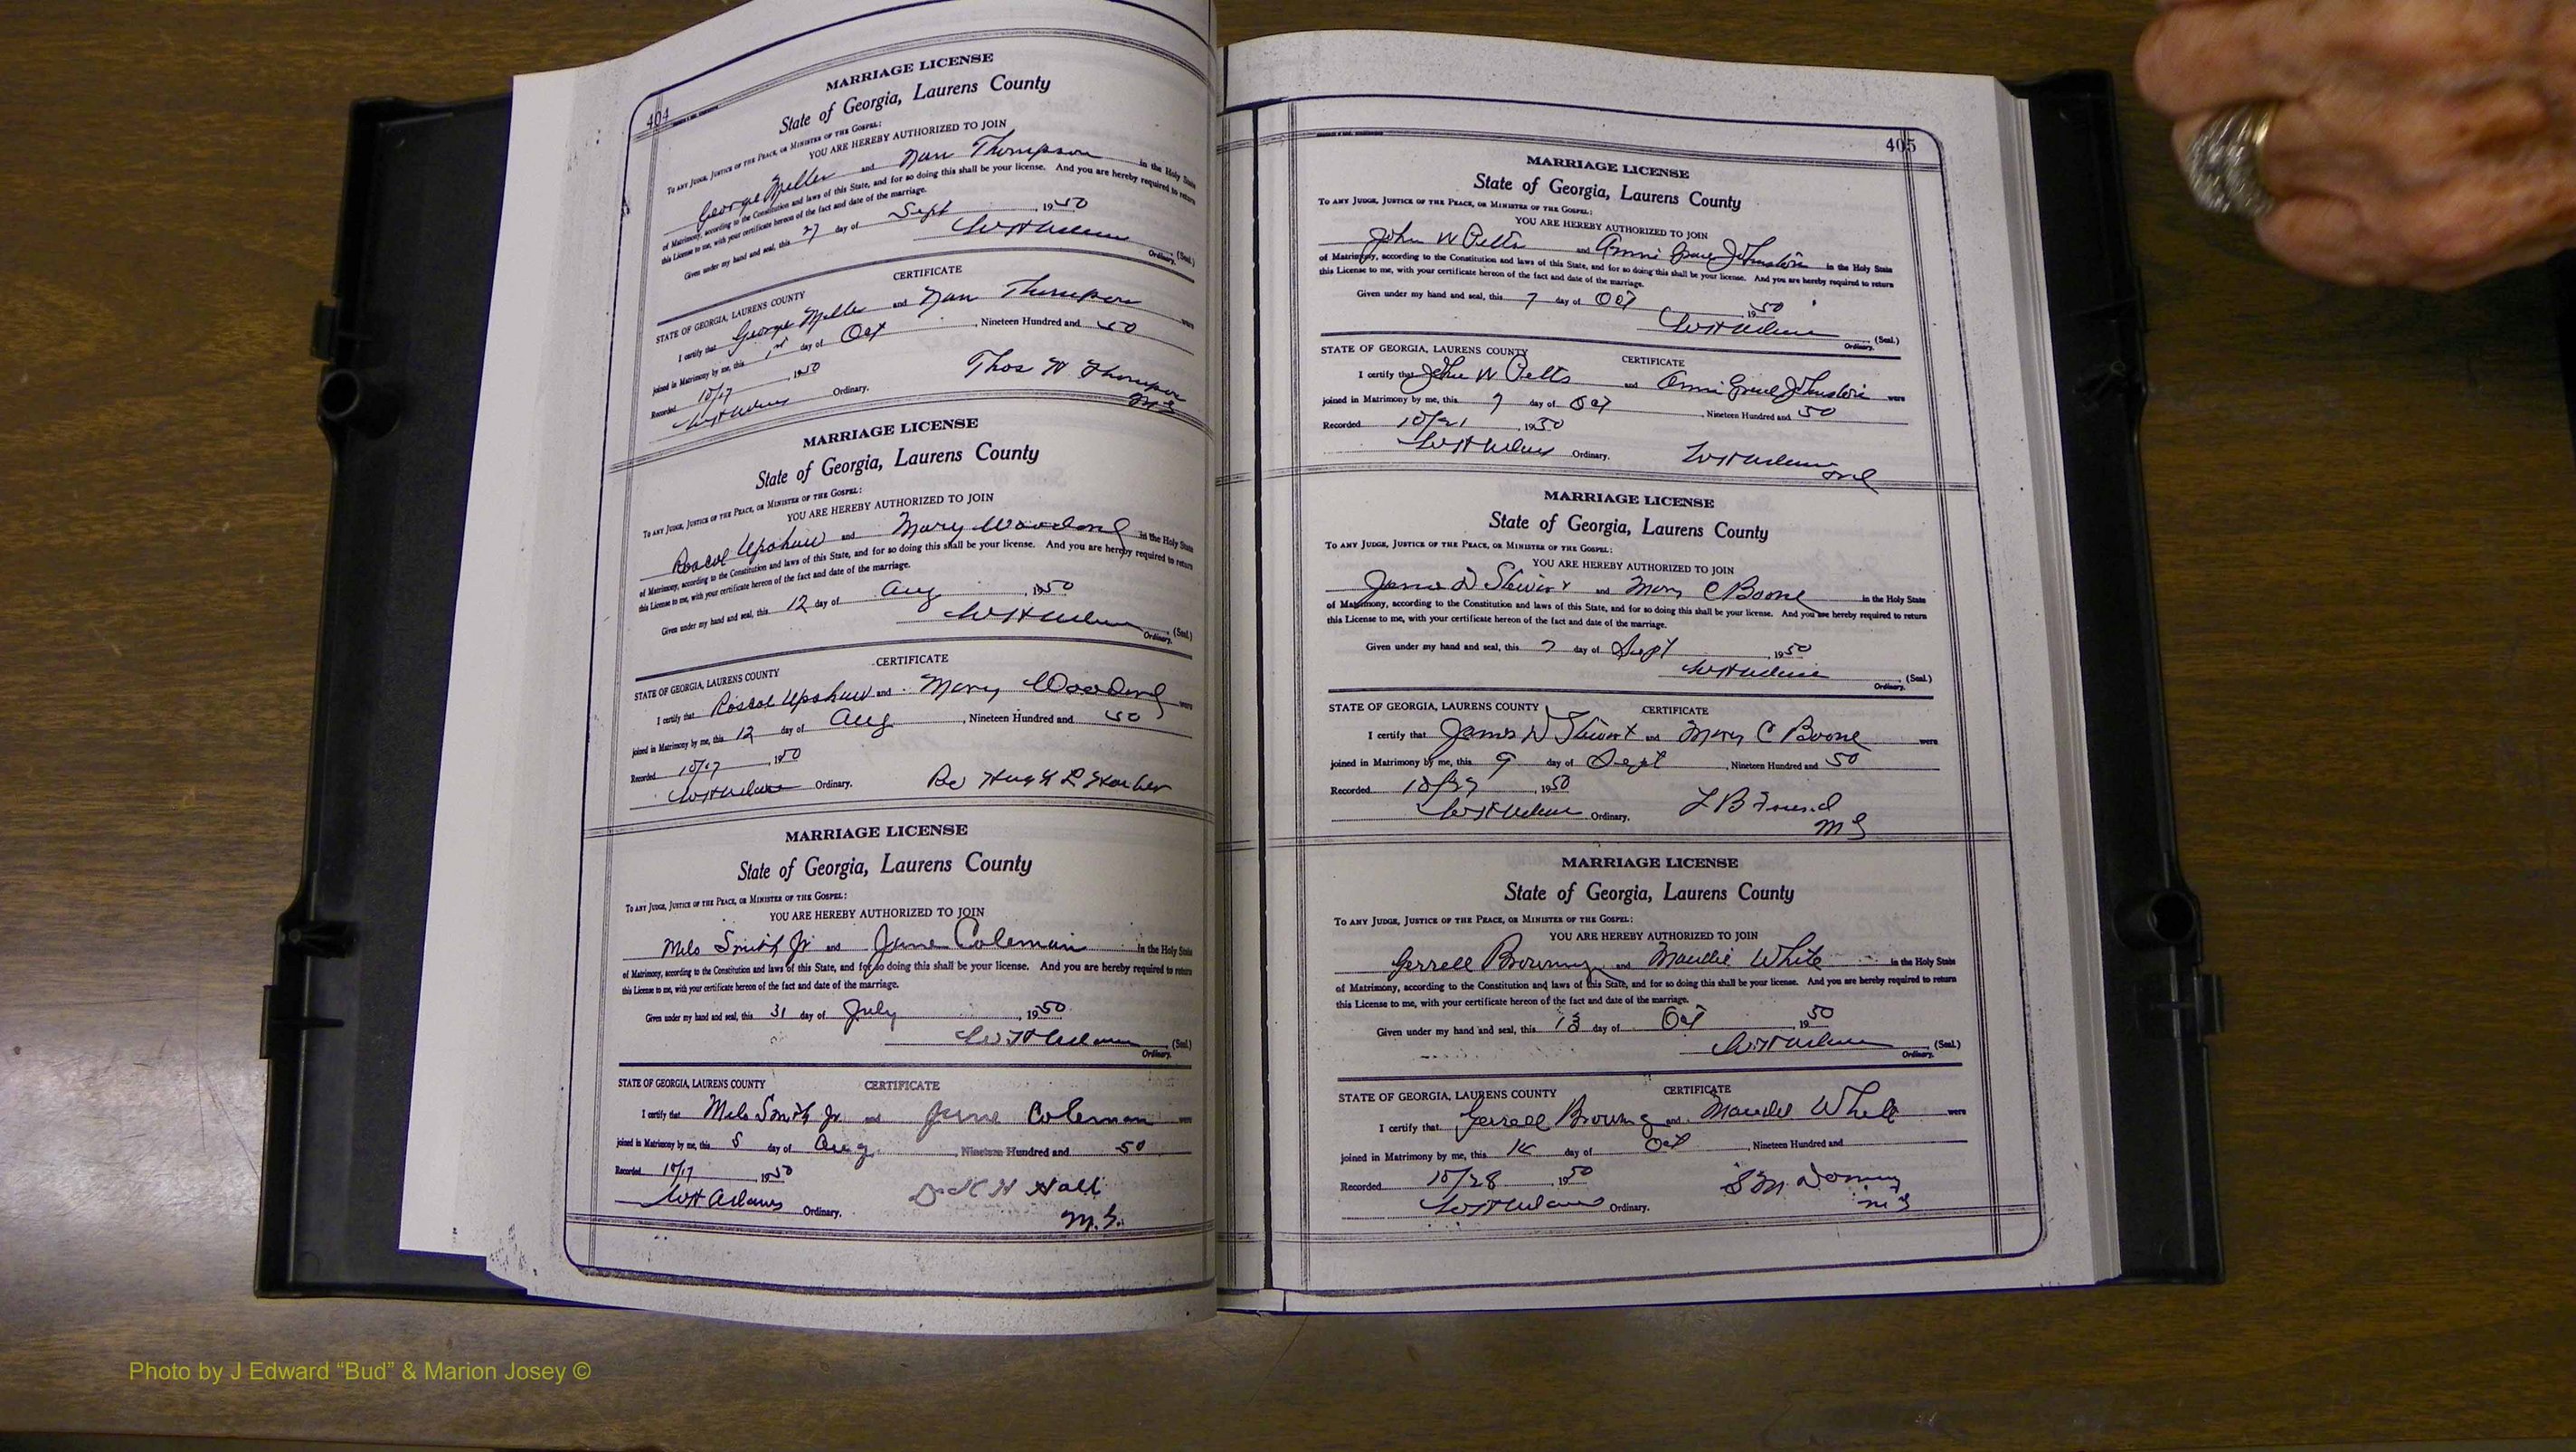 404
MARRIAGE LICENSE
State of Georgia, Laurens County
TO ANY JUDGE, JUSTICE OF THE PEACE, OR MINISTER OF THE GOSPEL:
YOU ARE HEREBY AUTHORIZED TO JOIN
George Miller and Nan Thompson in the Holy State
of Matrimony, according to the Constitution and laws of this State, and for so doing this shall be your license. And you are hereby required to return
this License to me, with your certificate hereon of the fact and date of the marriage.
Given under my hand and seal, this 27 day of Sept 1950
W H Adams (Seal)
Ordinary.
CERTIFICATE
STATE OF GEORGIA, LAURENS COUNTY
I certify that George Miller and Nan Thompson were
joined in Matrimony by me, this 1st day of Oct, Nineteen Hundred and 50
Recorded 10/17, 1950
W H Adams Ordinary. Thos W Thompson
MG
MARRIAGE LICENSE
State of Georgia, Laurens County
TO ANY JUDGE, JUSTICE OF THE PEACE, OR MINISTER OF THE GOSPEL:
YOU ARE HEREBY AUTHORIZED TO JOIN
Roscoe Upshaw and Mary Woodard in the Holy State
of Matrimony, according to the Constitution and laws of this State, and for so doing this shall be your license. And you are hereby required to return
this License to me, with your certificate hereon of the fact and date of the marriage.
Given under my hand and seal, this 12 day of Aug, 1950
W H Adams (Seal)
Ordinary.
CERTIFICATE
STATE OF GEORGIA, LAURENS COUNTY
I certify that Roscoe Upshaw and Mary Woodard were
joined in Matrimony by me, this 12 day of Aug, Nineteen Hundred and 50
Recorded 10/17, 1950
W H Adams Ordinary. Hugh L
MARRIAGE LICENSE
State of Georgia, Laurens County
TO ANY JUDGE, JUSTICE OF THE PEACE, OR MINISTER OF THE GOSPEL:
YOU ARE HEREBY AUTHORIZED TO JOIN
Milo Smith Jr and June Coleman in the Holy State
of Matrimony, according to the Constitution and laws of this State, and for so doing this shall be your license. And you are hereby required to return
this License to me, with your certificate hereon of the fact and date of the marriage.
Given under my hand and seal, this 31 day of July, 1950
W H Adams (Seal)
Ordinary.
STATE OF GEORGIA, LAURENS COUNTY CERTIFICATE
I certify that Milo Smith Jr. and June Coleman were
joined in Matrimony by me, this 5 day of Aug, Nineteen Hundred and 50
Recorded 10/17, 1950
W H Adams Ordinary. H Hall
M.G.
405
MARRIAGE LICENSE
State of Georgia, Laurens County
TO ANY JUDGE, JUSTICE OF THE PEACE, OR MINISTER OF THE GOSPEL:
YOU ARE HEREBY AUTHORIZED TO JOIN
John W Pitts and Johnston in the Holy State
of Matrimony, according to the Constitution and laws of this State, and for so doing this shall be your license. And you are hereby required to return
this License to me, with your certificate hereon of the fact and date of the marriage.
Given under my hand and seal, this 7 day of Oct 1950
W H Adams (Seal.)
Ordinary.
STATE OF GEORGIA, LAURENS COUNTY CERTIFICATE
I certify that John W Pitts and Johnston were
joined in Matrimony by me, this 7 day of Oct, Nineteen Hundred and 50
Recorded 10/21, 1950
W H Adams Ordinary. W H Adams
Ord
MARRIAGE LICENSE
State of Georgia, Laurens County
TO ANY JUDGE, JUSTICE OF THE PEACE, OR MINISTER OF THE GOSPEL:
YOU ARE HEREBY AUTHORIZED TO JOIN
James D Stewart and Mary C Boone in the Holy State
of Matrimony, according to the Constitution and laws of this State, and for so doing this shall be your license. And you are hereby required to return
this License to me, with your certificate hereon of the fact and date of the marriage.
Given under my hand and seal, this 7 day of Sept, 1950
W H Adams (Seal.)
Ordinary.
STATE OF GEORGIA, LAURENS COUNTY CERTIFICATE
I certify that James D Stewart and Mary C Boone were
joined in Matrimony by me, this 9 day of Sept, Nineteen Hundred and 50
Recorded 1950
W H Adams Ordinary. L B
MG
MARRIAGE LICENSE
State of Georgia, Laurens County
TO ANY JUDGE, JUSTICE OF THE PEACE, OR MINISTER OF THE GOSPEL:
YOU ARE HEREBY AUTHORIZED TO JOIN
Jerrell Browning and Maudie White in the Holy State
of Matrimony, according to the Constitution and laws of this State, and for so doing this shall be your license. And you are hereby required to return
this License to me, with your certificate hereon of the fact and date of the marriage.
Given under my hand and seal, this 13 day of Oct, 1950
W H Adams (Seal.)
Ordinary.
STATE OF GEORGIA, LAURENS COUNTY CERTIFICATE
I certify that Jerrell Browning and Maudie White were
joined in Matrimony by me, this day of Oct, Nineteen Hundred and
Recorded 10/28, 1950
W H Adams Ordinary.
MG
Photo by J Edward “Bud” & Marion Josey ©